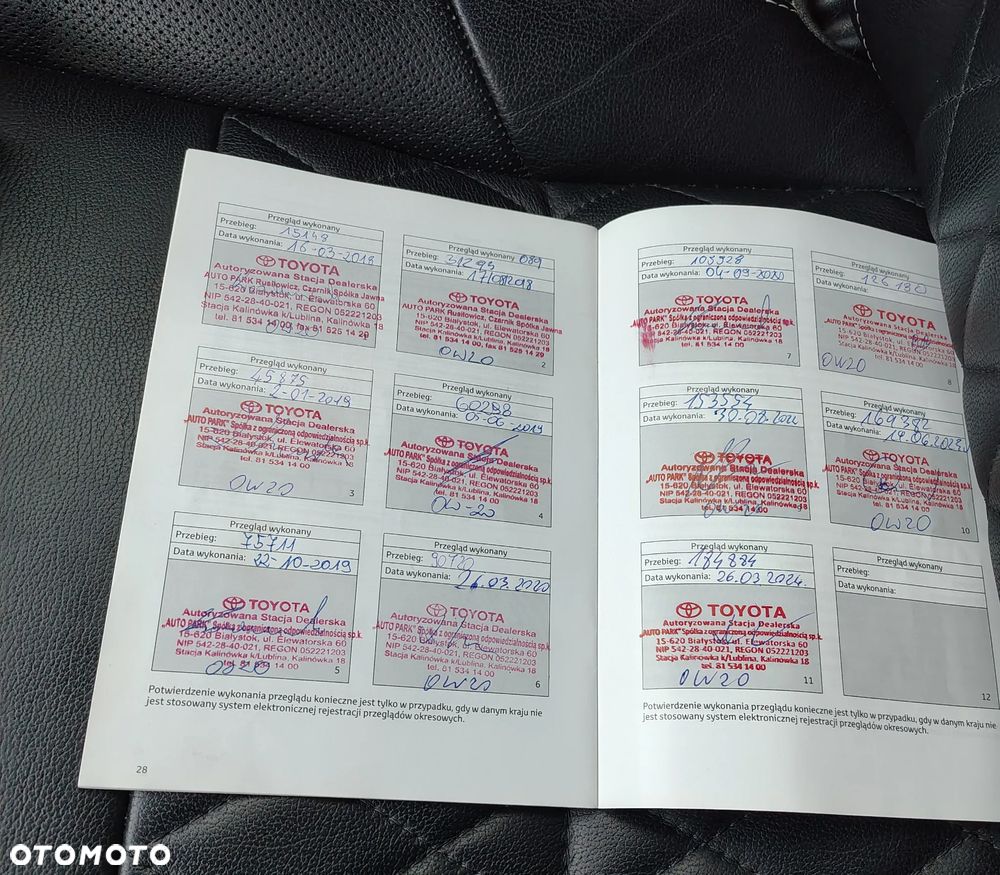 Przegląd wykonany
Przebieg: 15148
Data wykonania: 16-03-2018
TOYOTA
Autoryzowana Stacja Dealerska
AUTO PARK Rusiłowicz, Czarnik Spółka Jawna
15-620 Białystok, ul. Elewatorska 60
NIP 542-28-40-021, REGON 052221203
Stacja Kalinówka k/Lublina, Kalinówka 18
tel. 81 534 14 00, fax 81 525 14 29
Przegląd wykonany
Przebieg: 31294 089
Data wykonania:
TOYOTA
Autoryzowana Stacja Dealerska
AUTO PARK Rusiłowicz, Czarnik Spółka Jawna
15-620 Białystok, ul. Elewatorska 60
NIP 542-28-40-021, REGON 052221203
Stacja Kalinówka k/Lublina, Kalinówka 18
tel. 81 534 14 00, fax 81 525 14 29
0W20
2
Przegląd wykonany
Przebieg: 45875
Data wykonania: 2-01-2019
TOYOTA
Autoryzowana Stacja Dealerska
„AUTO PARK” Spółka z ograniczoną odpowiedzialnością sp.k.
15-620 Białystok, ul. Elewatorska 60
NIP 542-28-40-021, REGON 052221203
Stacja Kalinówka k/Lublina, Kalinówka 18
tel. 81 534 14 00
0W20
3
Przegląd wykonany
Przebieg: 60298
Data wykonania: 05-06-2019
TOYOTA
Autoryzowana Stacja Dealerska
„AUTO PARK” Spółka z ograniczoną odpowiedzialnością sp.k.
15-620 Białystok, ul. Elewatorska 60
NIP 542-28-40-021, REGON 052221203
Stacja Kalinówka k/Lublina, Kalinówka 18
tel. 81 534 14 00
0W-20
4
Przegląd wykonany
Przebieg: 75711
Data wykonania: 22-10-2019
TOYOTA
Autoryzowana Stacja Dealerska
„AUTO PARK” Spółka z ograniczoną odpowiedzialnością sp.k.
15-620 Białystok, ul. Elewatorska 60
NIP 542-28-40-021, REGON 052221203
Stacja Kalinówka k/Lublina, Kalinówka 18
tel. 81 534 14 00
5
Przegląd wykonany
Przebieg: 90720
Data wykonania: 26.03.2020
TOYOTA
Autoryzowana Stacja Dealerska
„AUTO PARK” Spółka z ograniczoną odpowiedzialnością sp.k.
15-620 Białystok, ul. Elewatorska 60
NIP 542-28-40-021, REGON 052221203
Stacja Kalinówka k/Lublina, Kalinówka 18
tel. 81 534 14 00
0W20
6
Potwierdzenie wykonania przeglądu konieczne jest tylko w przypadku, gdy w danym kraju nie
jest stosowany system elektronicznej rejestracji przeglądów okresowych.
28
Przegląd wykonany
Przebieg: 103928
Data wykonania: 04-09-2020
TOYOTA
Autoryzowana Stacja Dealerska
„AUTO PARK” Spółka z ograniczoną odpowiedzialnością sp.k.
15-620 Białystok, ul. Elewatorska 60
NIP 542-28-40-021, REGON 052221203
Stacja Kalinówka k/Lublina, Kalinówka 18
tel. 81 534 14 00
7
Przegląd wykonany
Przebieg: 126130
Data wykonania:
TOYOTA
Autoryzowana Stacja Dealerska
„AUTO PARK” Spółka z ograniczoną odpowiedzialnością sp.k.
15-620 Białystok, ul. Elewatorska 60
NIP 542-28-40-021, REGON 052221203
Stacja Kalinówka k/Lublina, Kalinówka 18
tel. 81 534 14 00
0W20
8
Przegląd wykonany
Przebieg: 153554
Data wykonania: 30.08.2022
TOYOTA
Autoryzowana Stacja Dealerska
„AUTO PARK” Spółka z ograniczoną odpowiedzialnością sp.k.
15-620 Białystok, ul. Elewatorska 60
NIP 542-28-40-021, REGON 052221203
Stacja Kalinówka k/Lublina, Kalinówka 18
tel. 81 534 14 00
Przegląd wykonany
Przebieg: 169382
Data wykonania: 14.06.2023
TOYOTA
Autoryzowana Stacja Dealerska
„AUTO PARK” Spółka z ograniczoną odpowiedzialnością sp.k.
15-620 Białystok, ul. Elewatorska 60
NIP 542-28-40-021, REGON 052221203
Stacja Kalinówka k/Lublina, Kalinówka 18
tel. 81 534 14 00
0W20
10
Przegląd wykonany
Przebieg: 184884
Data wykonania: 26.03.2024.
TOYOTA
Autoryzowana Stacja Dealerska
„AUTO PARK” Spółka z ograniczoną odpowiedzialnością sp.k.
15-620 Białystok, ul. Elewatorska 60
NIP 542-28-40-021, REGON 052221203
Stacja Kalinówka k/Lublina, Kalinówka 18
tel. 81 534 14 00
0W20
11
Przegląd wykonany
Przebieg:
Data wykonania:
12
Potwierdzenie wykonania przeglądu konieczne jest tylko w przypadku, gdy w danym kraju nie
jest stosowany system elektronicznej rejestracji przeglądów okresowych.
OTOMOTO